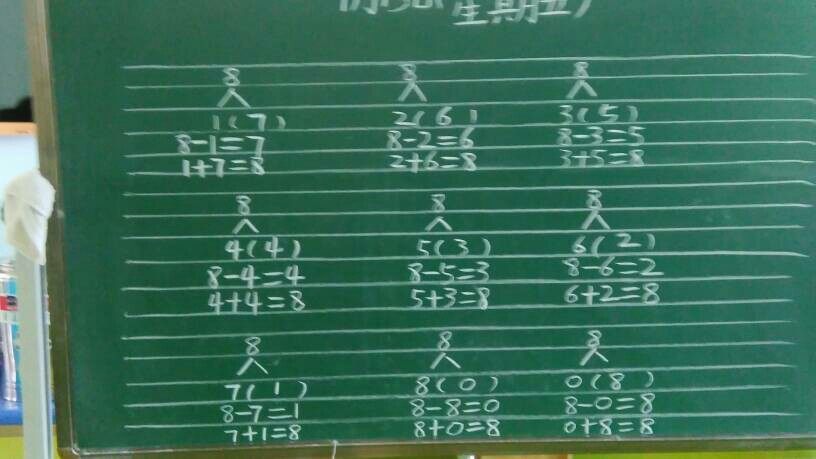 星期五)
8 8 8
1(7) 2(6) 3(5)
8-1=7 8-2=6 8-3=5
1+7=8 2+6=8 3+5=8
8 8 8
4(4) 5(3) 6(2)
8-4=4 8-5=3 8-6=2
4+4=8 5+3=8 6+2=8
8 8 8
7(1) 8(0) 0(8)
8-7=1 8-8=0 8-0=8
7+1=8 8+0=8 0+8=8